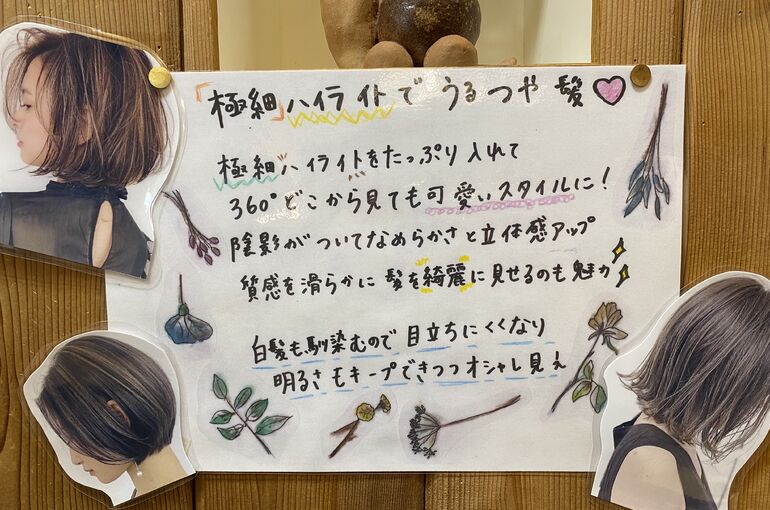 「極細」ハイライトでうるつや髪
極細ハイライトをたっぷり入れて
360°どこから見ても可愛いスタイルに!
陰影がついてなめらかさと立体感アップ
質感を滑らかに髪を綺麗に見せるのも魅力
白髪も馴染むので目立ちにくくなり
明るさもキープできつつオシャレ見え